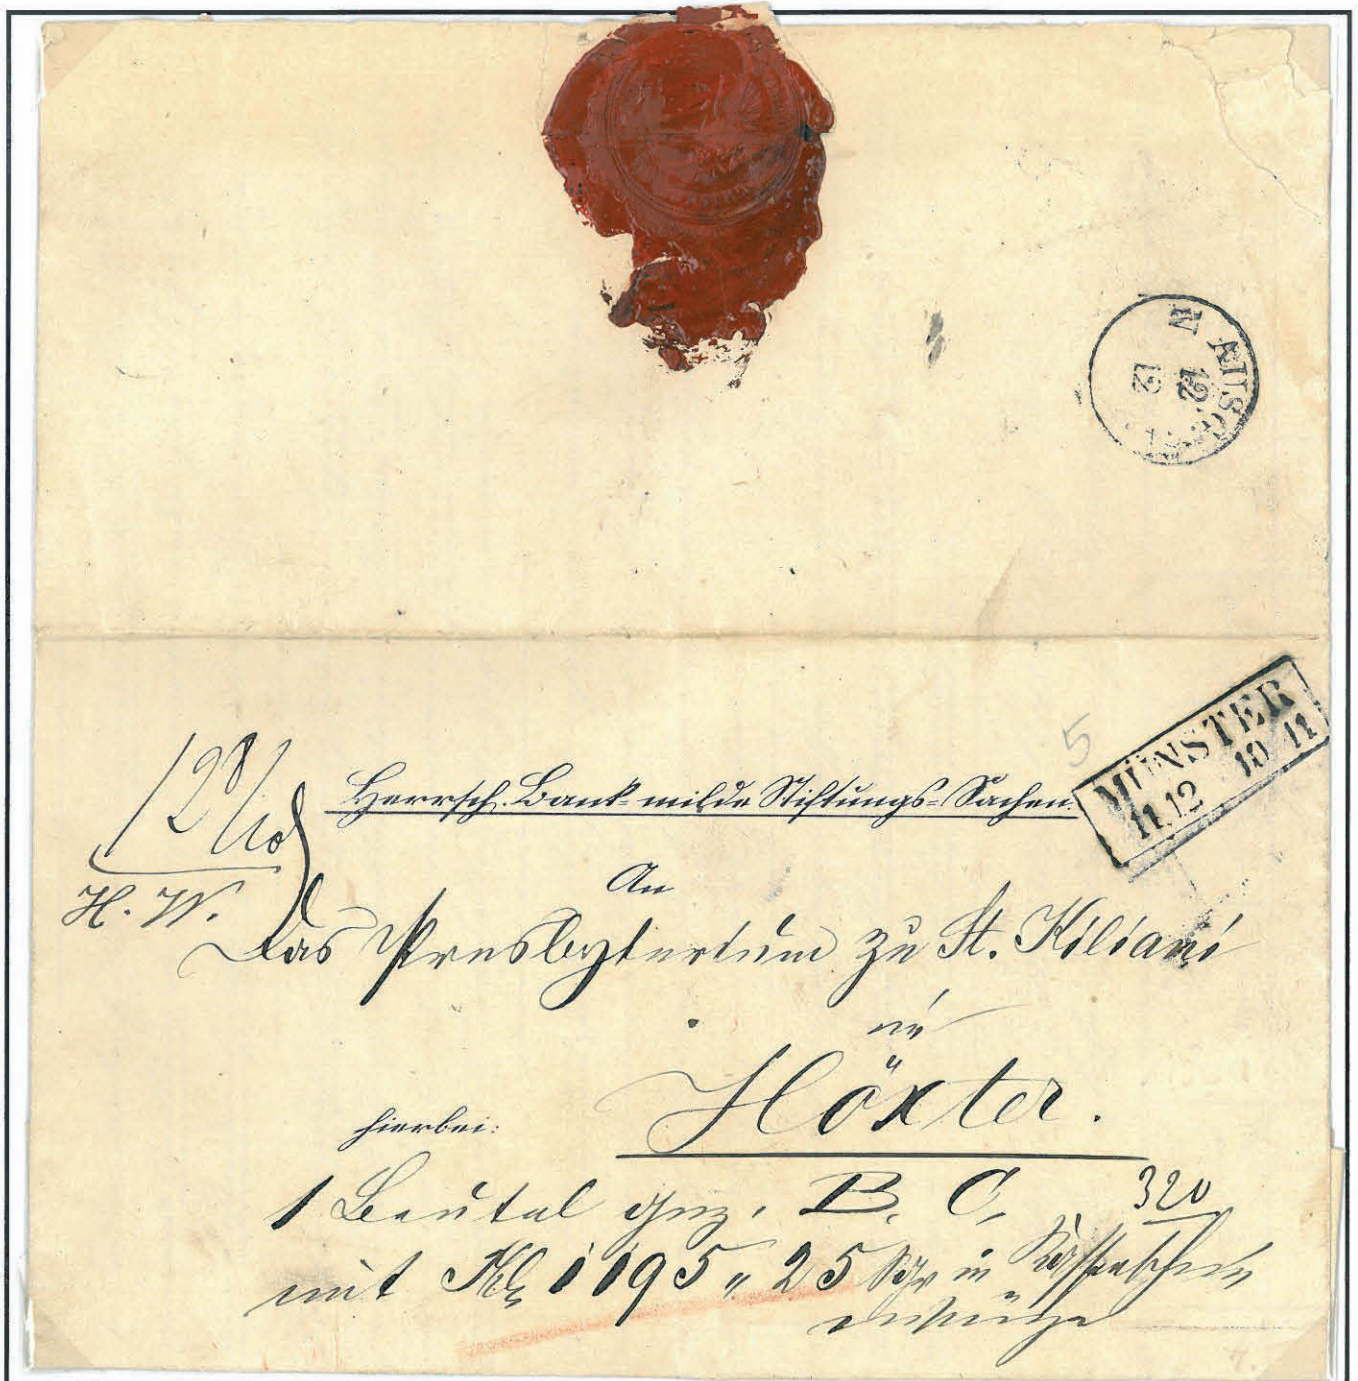 N AUSG
12
12
5
MÜNSTER
11.12 10-11
Herrsch. Bank- milde Stiftungs-Sachen.
H. W.
An
Das Presbyterium zu St. Kiliani
in
Höxter.
hierbei:
1 Beutel gez. B. C. 320
mit 1195 „ 25 Sgr in Kassenschein